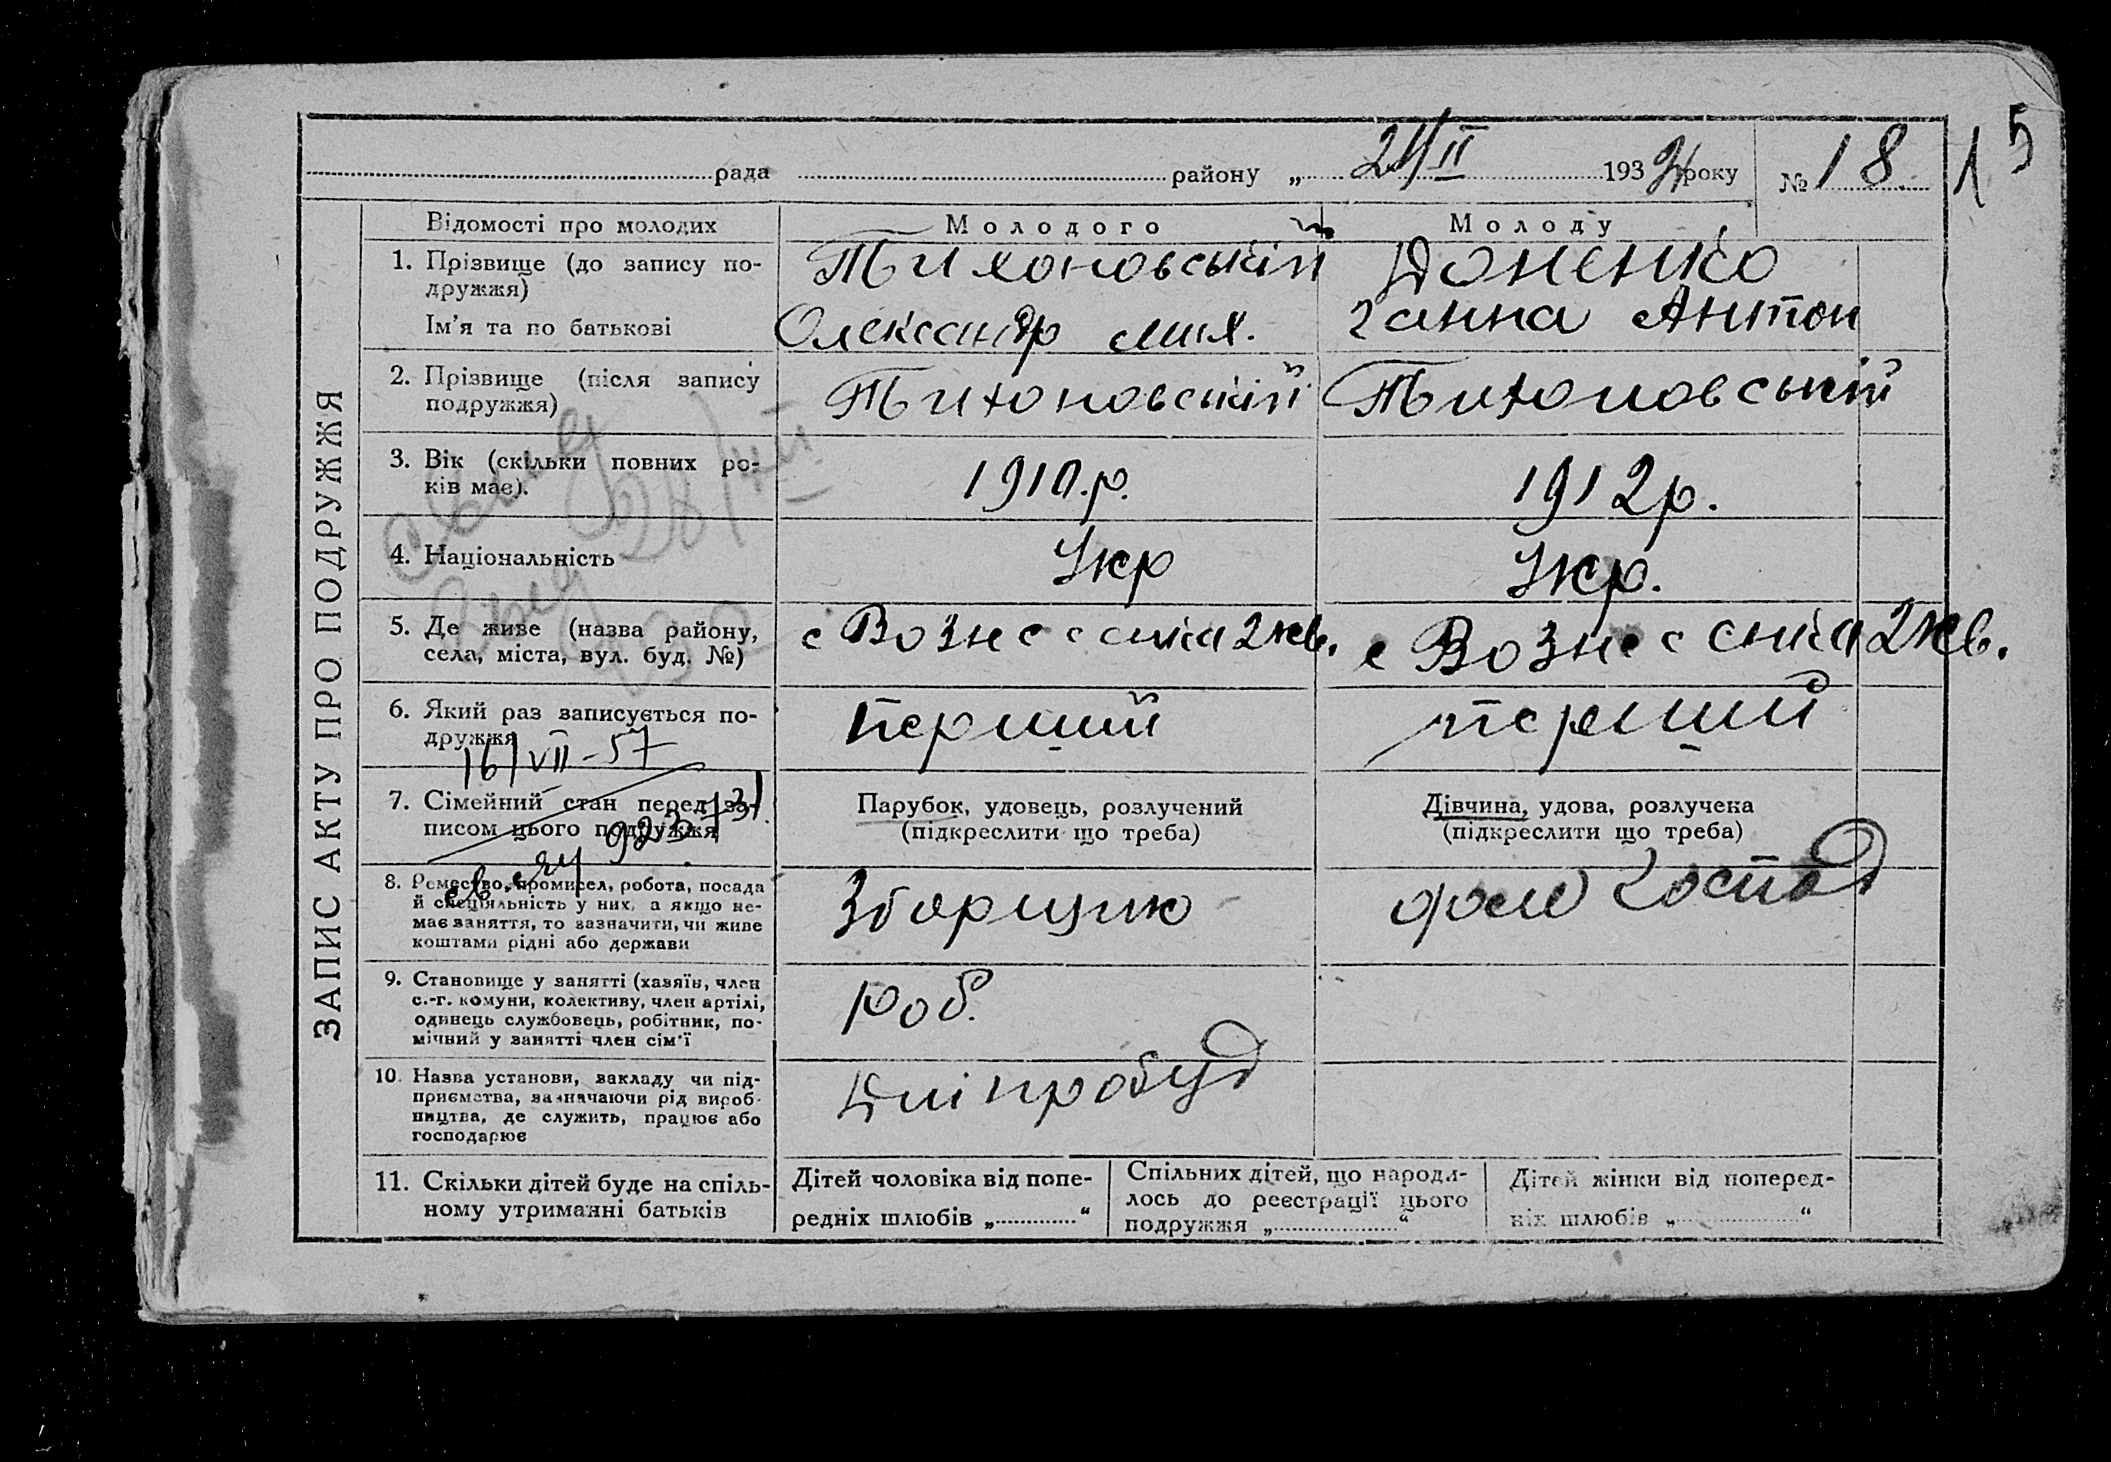 рада района „ 24/II 1934 року № 18. 15
ЗАПИС АКТУ ПРО ПОДРУЖЖЯ
Відомості про молодих
Молодого
Молоду
1. Прізвище (до запису по-
дружжя)
Ім'я та по батькові
Тихоновський
Олександр мих.
Доненко
Ганна Антон
2. Прізвище (після запису
подружжя)
Тихоновський
Тихоновський
3. Вік (скільки повних ро-
ків має).
1910.р.
1912р.
4. Національність
Укр
Укр.
5. Де живе (назва району,
села, міста, вул. буд. №)
с Вознесенка 2кв.
с Вознесенка 2кв.
6. Який раз записується по-
дружжя
Перший
перший
16/VII-57
7. Сімейний стан перед за-
писом цього подружжя
Парубок, удовець, розлучений
(підкреслити що треба)
Дівчина, удова, розлучена
(підкреслити що треба)
8. Ремество, промисел, робота, посада
й спеціяльність у них, а якщо не-
має заняття, то зазначити, чи живе
коштами рідні або держави
Зборщик
дом господ
9. Становище у занятті (хазяїн, член
с.-г. комуни, колективу, член артілі,
одинець службовець, робітник, по-
мічний у занятті член сім'ї
Роб.
10. Назва установи, закладу чи під-
приємства, зазначаючи рід вироб-
ництва, де служить, працює або
господарює
Дніпробуд
11. Скільки дітей буде на спіль-
ному утриманні батьків
Дітей чоловіка від попе-
редніх шлюбів „ “
Спільних дітей, що народи-
лось до реєстрації цього
подружжя „ “
Дітей жінки від поперед-
ніх шлюбів „ “